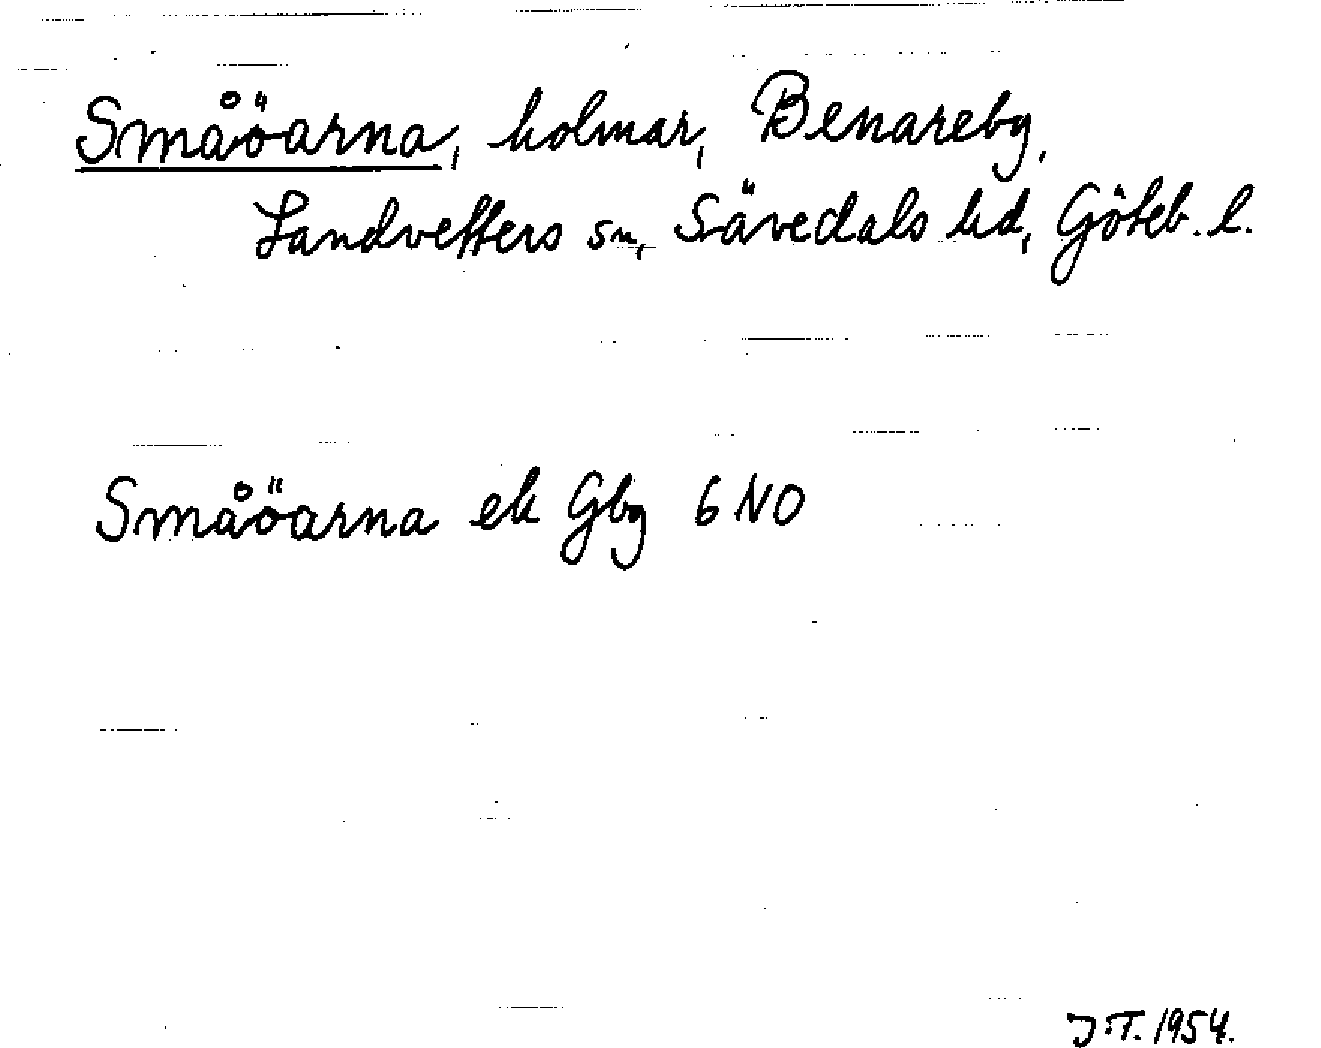 Småöarna, holmar, Benareby,
Landvetters sn, Sävedals hd, Göteb. l.
Småöarna ek Gbg 6 NO
J T. 1954.